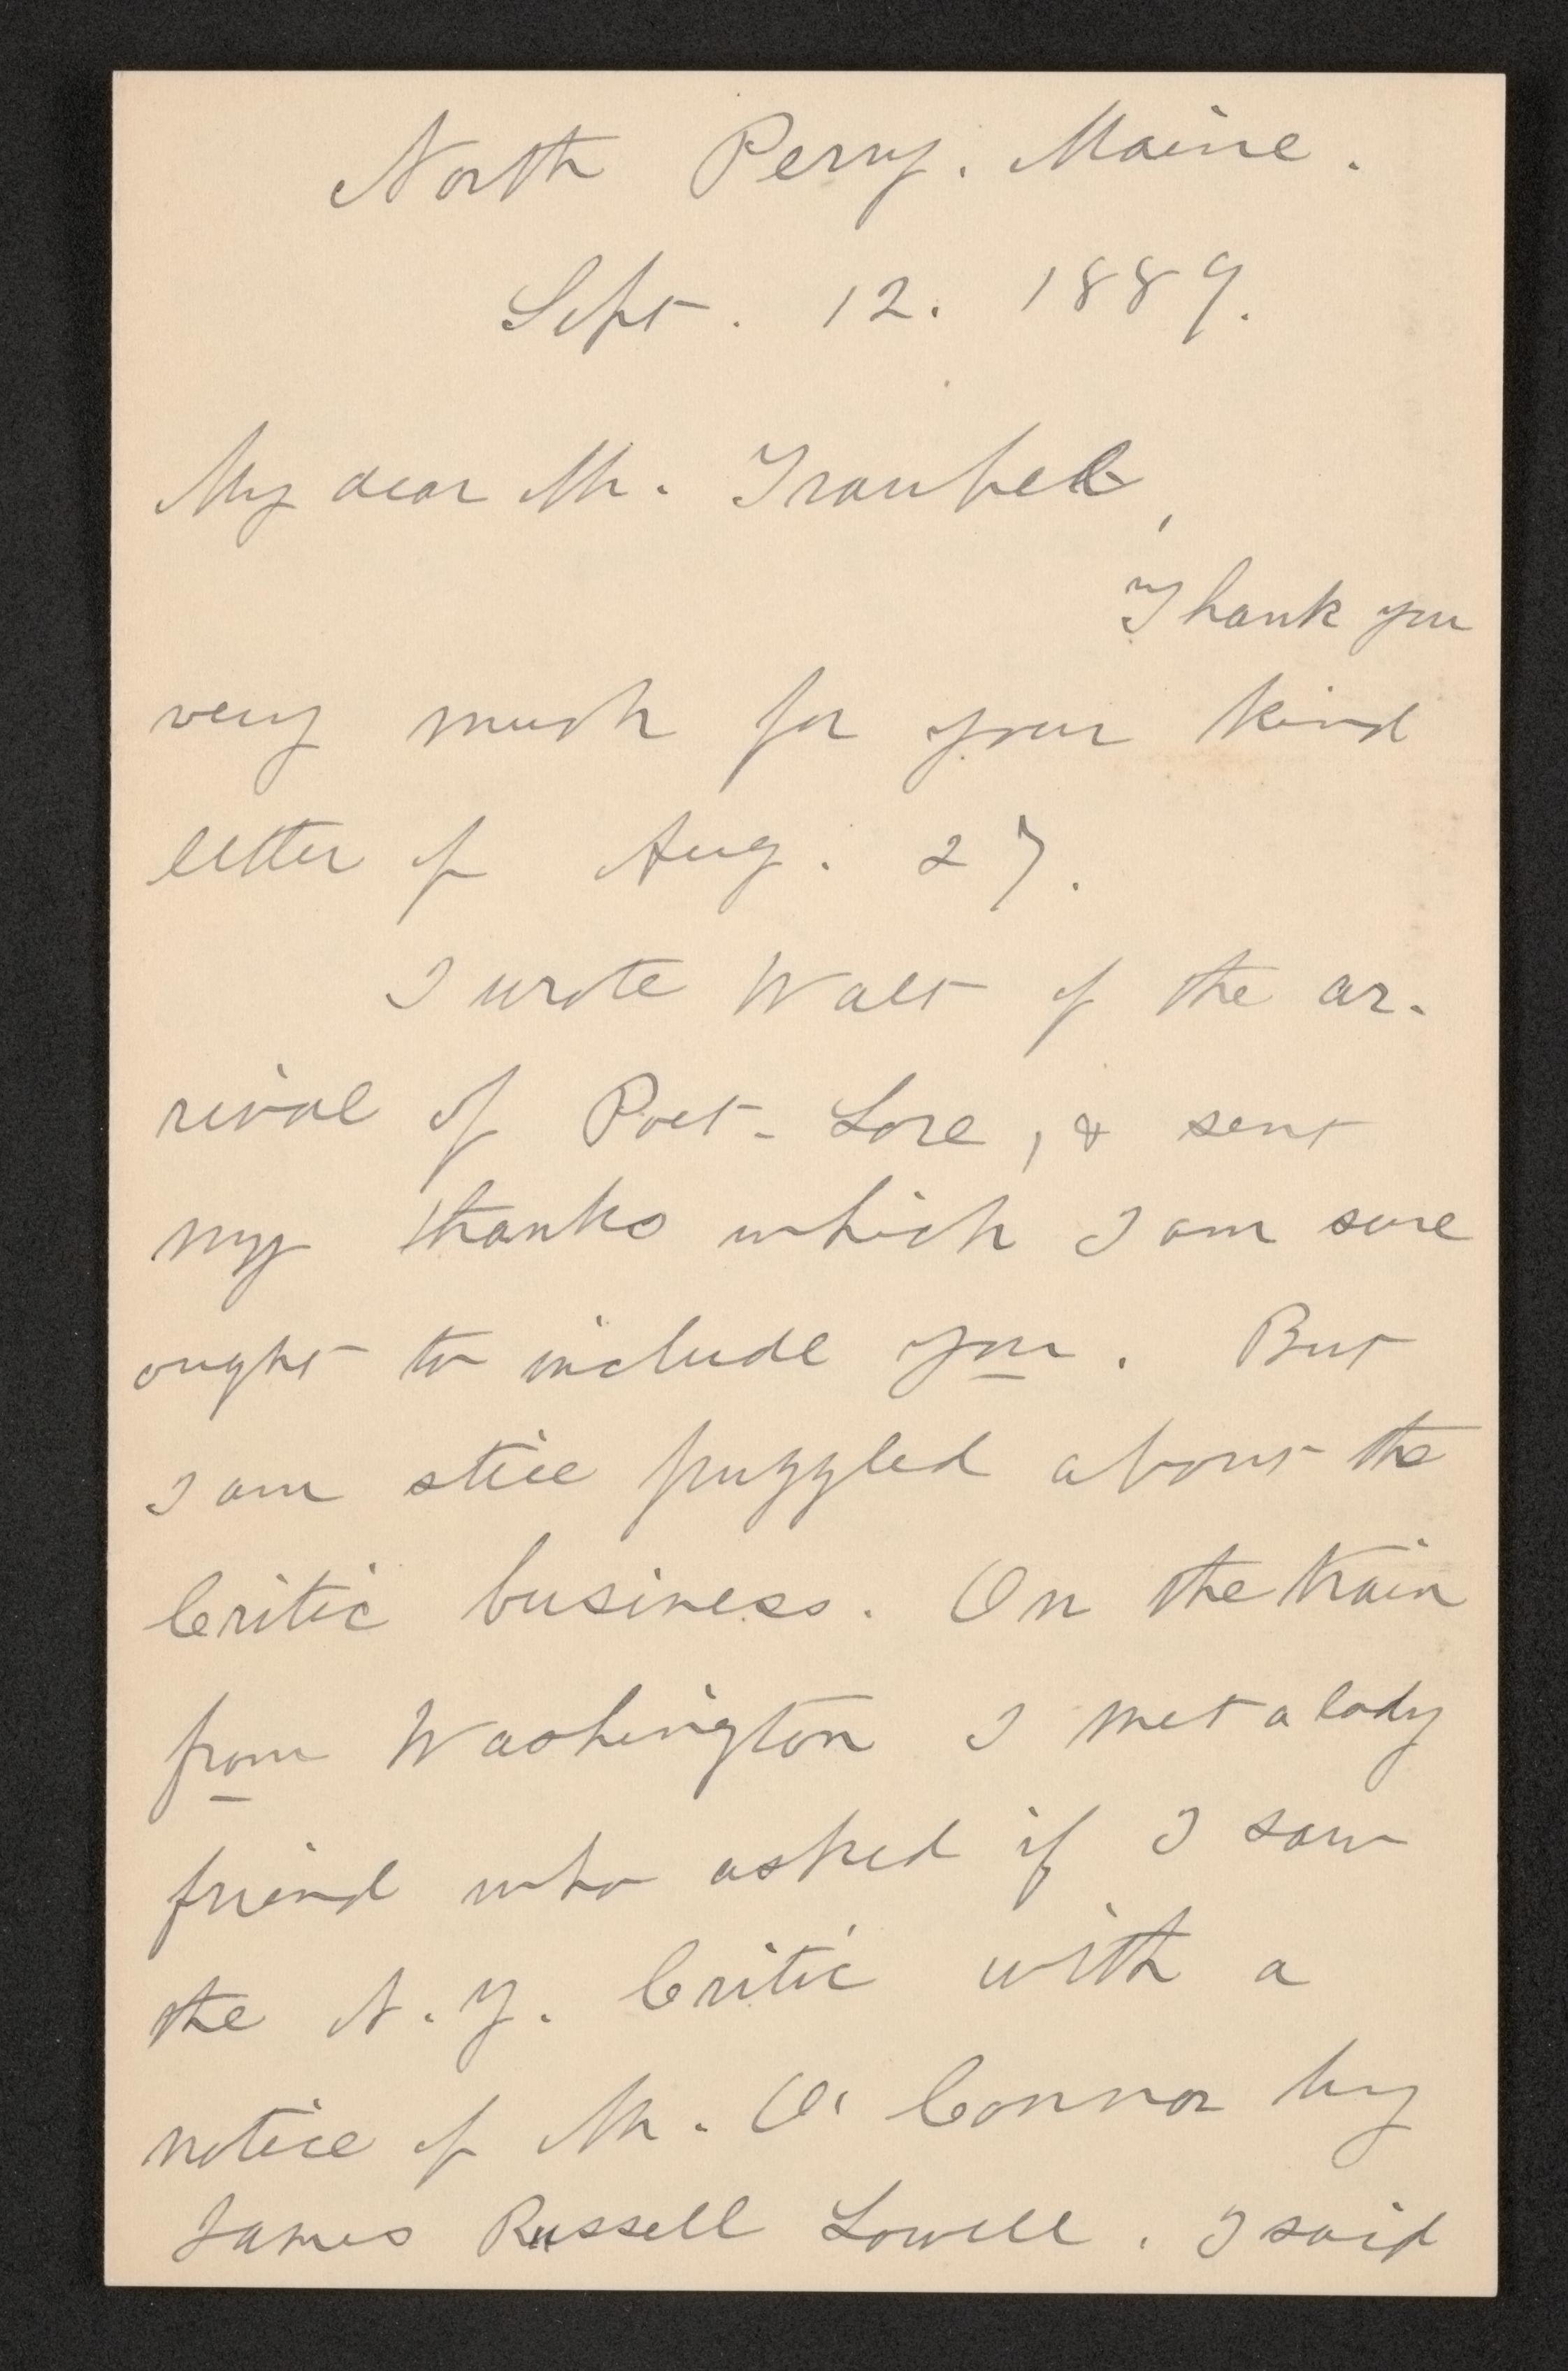 North Perry. Maine.
Sept. 12. 1889.
My dear Mr. Traubel,
Thank you
very much for your kind
letter of Aug. 27.
I wrote Walt of the ar-
rival of Poet-Lore, & sent
my thanks which I am sure
ought to include you. But
I am still puzzled about the
Critic business. On the train
from Washington I met a lady
friend who asked if I saw
the N.Y. Critic with a
notice of Mr. O'Connor by
James Russell Lowell. I said